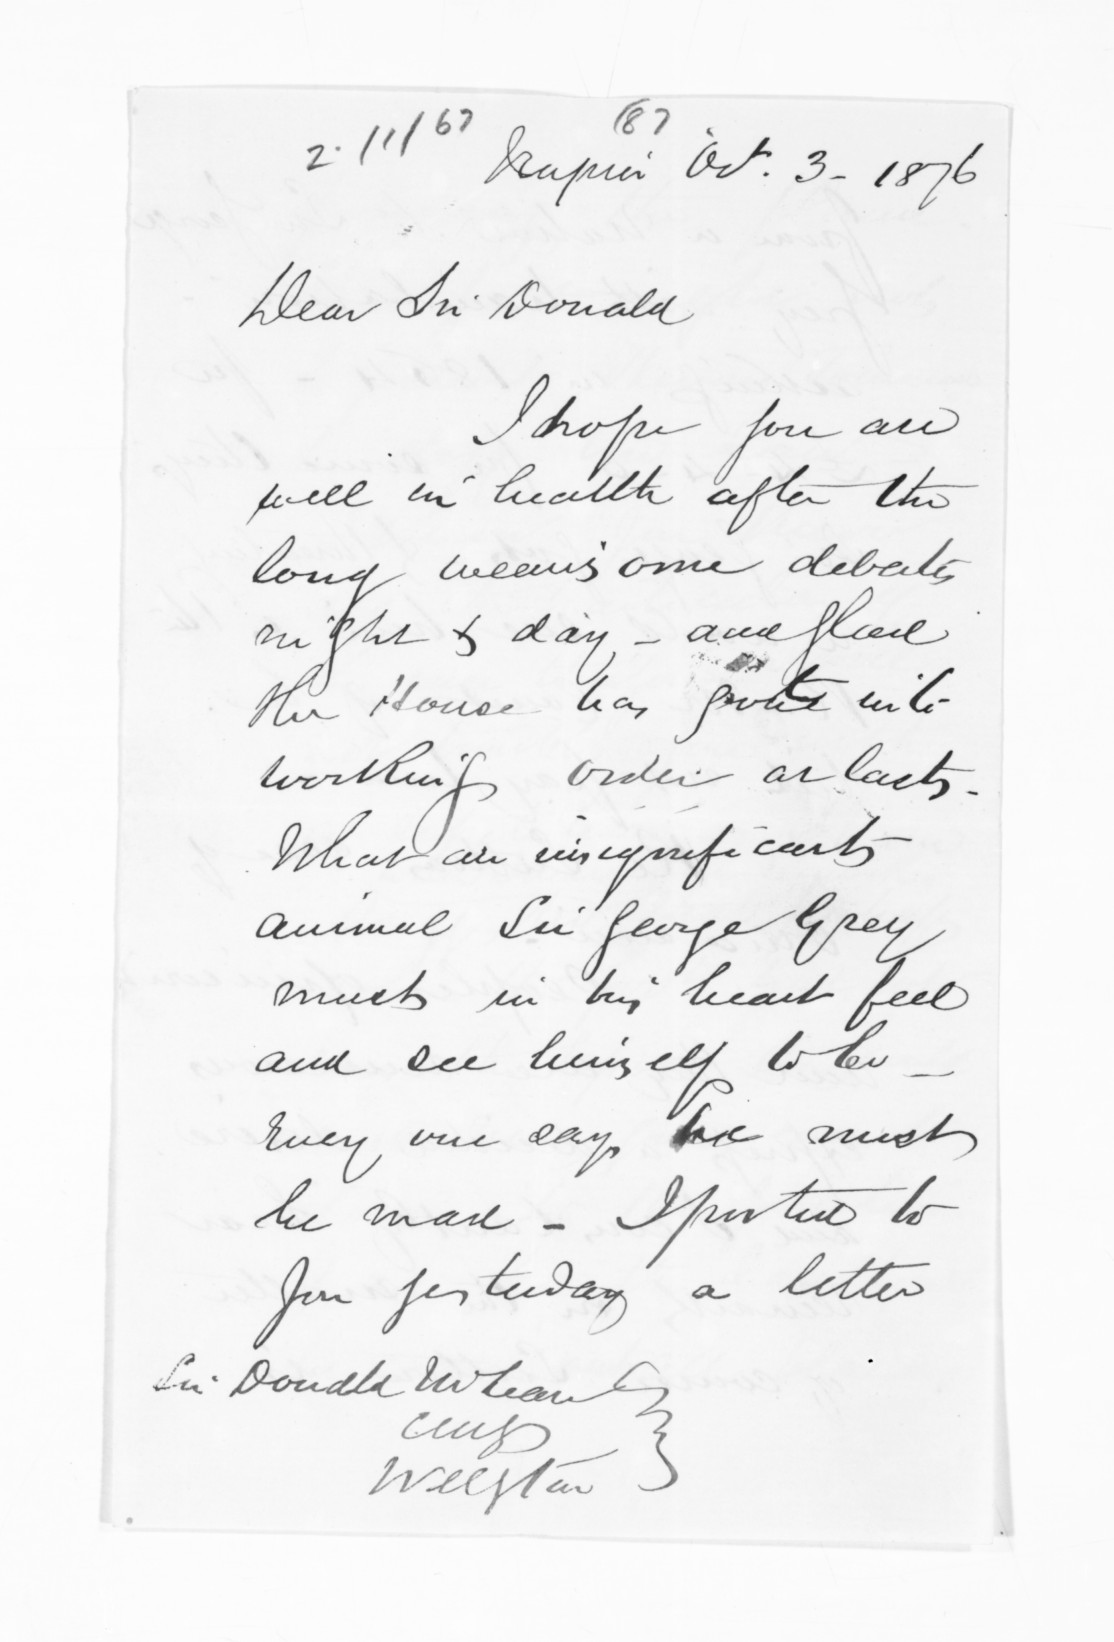 2./1/67 (87
Napier Oct. 3 - 1876
Dear Sir Donald
I hope you are
well in health after the
long wearisome debates
night & day - and glad
the House has gone into
working order at last.
What an insignificant
animal Sir George Grey
must in his heart feel
and see himself to be -
Every one says he must
be mad - I posted to
you yesterday a letter
Sir Donald McLean
Wellgton